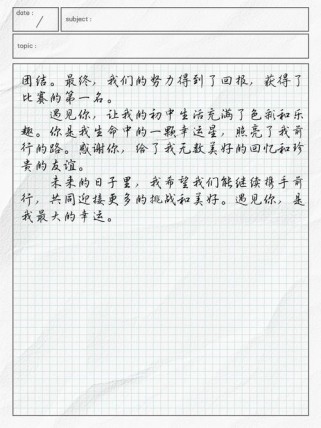 date :
/
subject :
topic :
团结。最终，我们的努力得到了回报，获得了
比赛的第一名。
遇见你，让我的初中生活充满了色彩和乐
趣。你是我生命中的一颗幸运星，照亮了我前
行的路。感谢你，给了我无数美好的回忆和珍
贵的友谊。
未来的日子里，我希望我们能继续携手前
行，共同迎接更多的挑战和美好。遇见你，是
我最大的幸运。